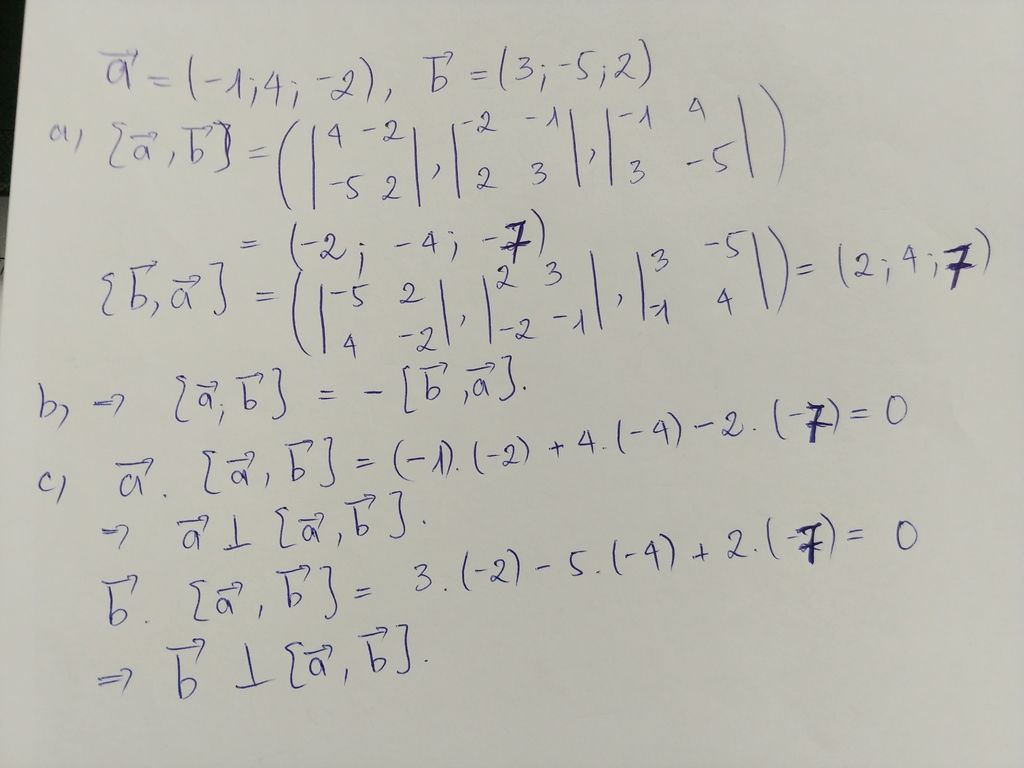 a⃗ = (-1; 4; -2), b⃗ = (3; -5; 2)
a, [a⃗, b⃗] = (|4 -2; -5 2|, |-2 -1; 2 3|, |-1 4; 3 -5|)
= (-2; -4; -7)
[b⃗, a⃗] = (|-5 2; 4 -2|, |2 3; -2 -1|, |3 -5; -1 4|) = (2; 4; 7)
b, → [a⃗, b⃗] = - [b⃗, a⃗].
c, a⃗. [a⃗, b⃗] = (-1).(-2) + 4.(-4) - 2.(-7) = 0
⇒ a⃗ ⊥ [a⃗, b⃗].
b⃗. [a⃗, b⃗] = 3.(-2) - 5.(-4) + 2.(-7) = 0
⇒ b⃗ ⊥ [a⃗, b⃗].